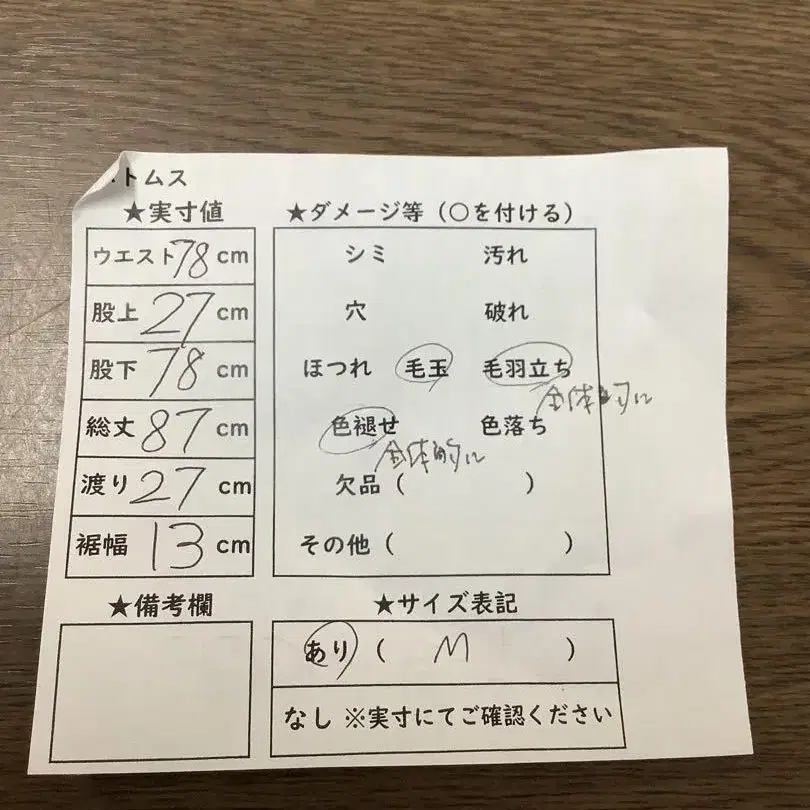 トムス
★実寸値
ウエスト 78 cm
股上 27 cm
股下 78 cm
総丈 87 cm
渡り 27 cm
裾幅 13 cm
★備考欄
★ダメージ等（○を付ける）
シミ 汚れ
穴 破れ
ほつれ 毛玉 毛羽立ち
全体的に
色褪せ 色落ち
全体的に
欠品（ ）
その他（ ）
★サイズ表記
あり（ M ）
なし ※実寸にてご確認ください